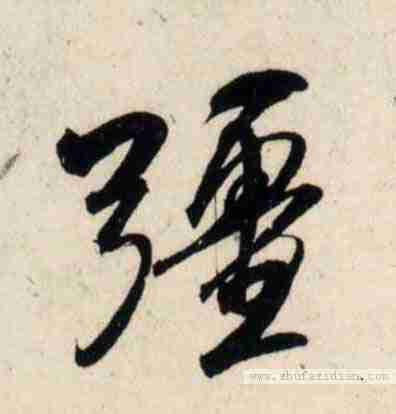 彊
www.shufazidian.com